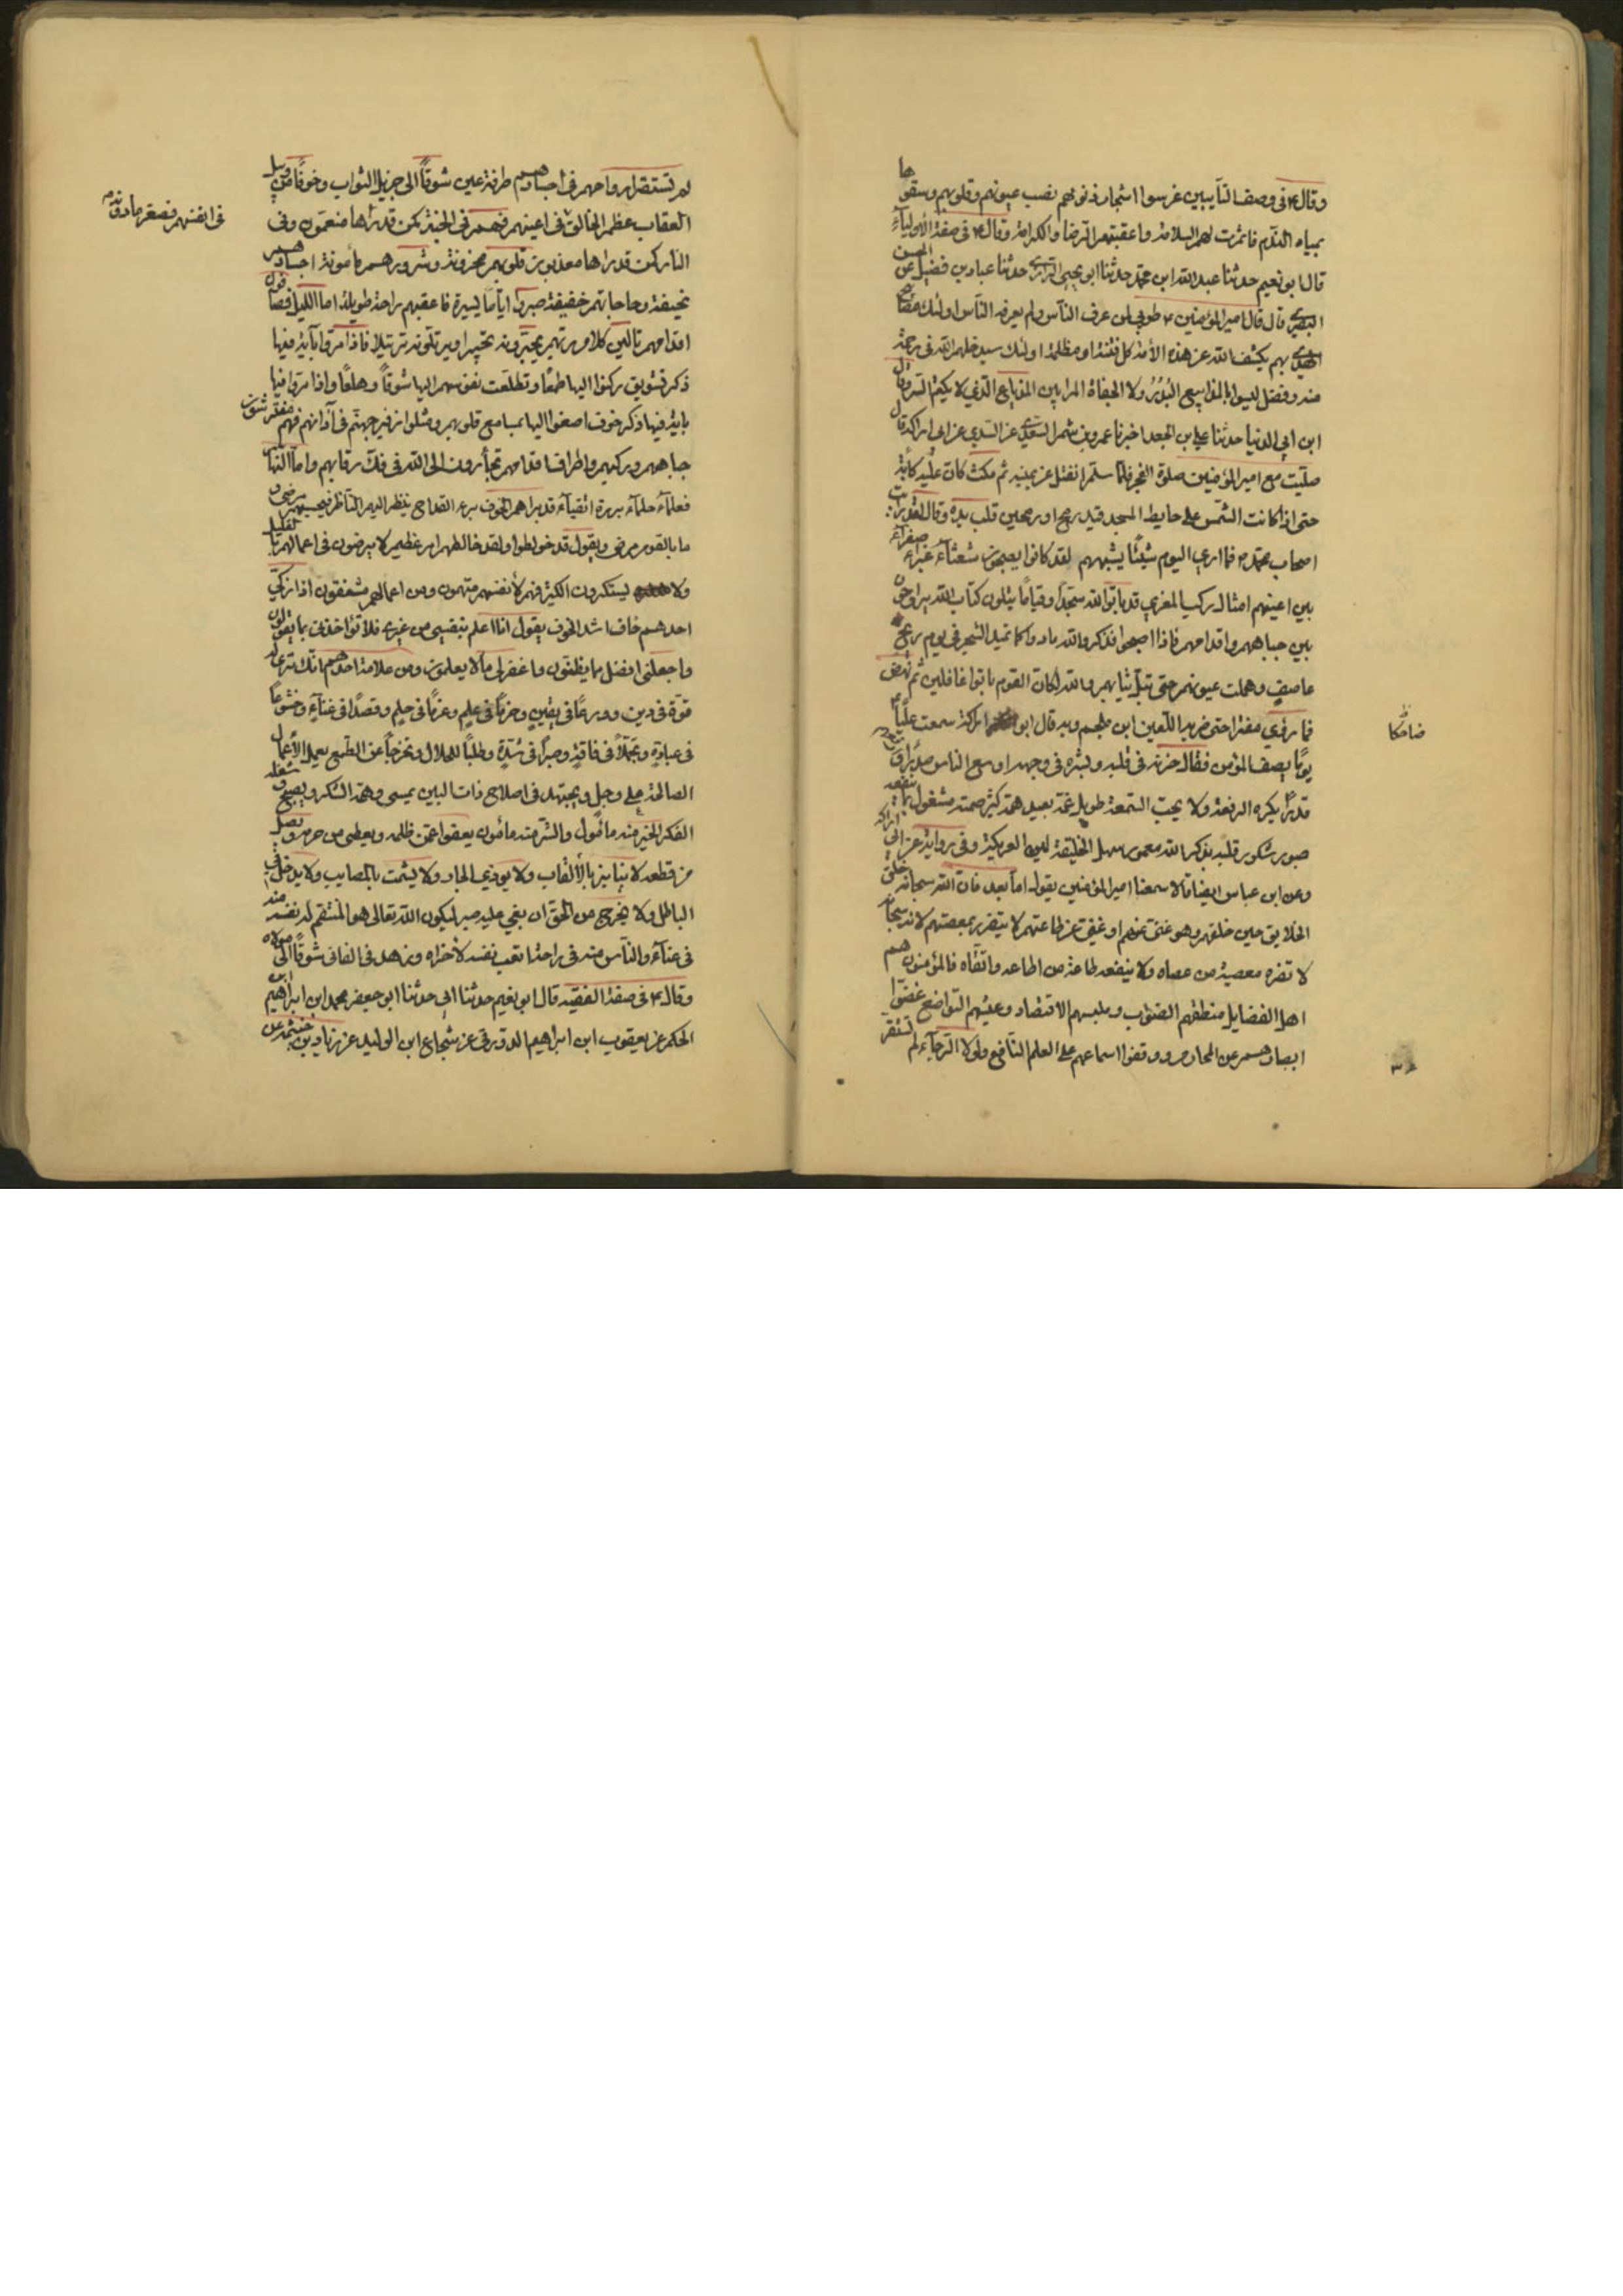 وقال ع في وصف التآيبين غرسوا اشجار ذنوبهم نصب عيونهم وقلوبهم وسقوها
بمياه الندم فاثمرت لهم السلامة واعقبتهم الرضا والكرامة وقال ع في صفة الاوليآء
قال ابو نعيم حدثنا عبد الله ابن محمد حدثنا ابو يحيى الرازي حدثنا عباد بن فضيل عن الحسن
البصري قال قال امير المؤمنين ع طوبى لمن عرف الناس ولم يعرفه الناس اولئك مصابيح
الهدى بهم يكشف الله عن هذه الأمة كل فتنة او مظلمة اولئك سيدخلهم الله في رحمة
منه وفضل ليسوا بالمذاييع البذر ولا الجفاة المرايين المذياع الذي لا يكتم السر وقال
ابن ابي الدنيا حدثنا علي بن الجعد اخبرنا عمرو بن شمر السعدي عن السدي عن ابي اراكه قال
صليت مع امير المؤمنين صلوة الفجر فلما سلم انفتل عن يمينه ثم مكث كان عليه كأبة
حتى اذا كانت الشمس على حايط المسجد قيد رمح او رمحين قلب يده وقال لقد رايت
اصحاب محمد ص فما ارى اليوم شيئًا يشبههم لقد كانوا يصبحون شعثآء غبرآء صفرآء
بين اعينهم امثال ركب المعزي قد باتوا لله سجدًا وقيامًا يتلون كتاب الله يراوحون
بين جباههم واقدامهم فاذا اصبحوا فذكروا الله مادوا كما تميد الشجر في يوم ريح
عاصف وهملت عيونهم حتى تبل ثيابهم والله لكان القوم باتوا غافلين ثم نهض
فما رؤي مفترا حتى ضربه اللعين ابن ملجم وبه قال ابو اراكة سمعت عليًا ع
ضاحكا
يومًا يصف المؤمن فقال حزنه في قلبه وبشره في وجهه اوسع الناس صدرًا وارفعهم
قدرًا يكره الرفعة ولا يحب السمعة طويل غمه بعيد همه كثير صمته مشغول بما ينفعه
صبور شكور قلبه بذكر الله معمور سهل الخليقة لين العريكة وفي رواية عن ابي اراكه
وعن ابن عباس ايضا قالا سمعنا امير المؤمنين يقول اما بعد فان الله سبحانه خلق
الخلايق حين خلقهم وهو غني عنهم او غني عن طاعتهم لا يتضرر بمعصيتهم لانه سبحانه
لا تضره معصية من عصاه ولا ينفعه طاعة من اطاعه واتقاه فالمؤمنون هم
اهل الفضايل منطقهم الصواب وملبسهم الاقتصاد ومشيهم التواضع غضوا
ابصارهم عن المحارم ووقفوا اسماعهم على العلم النافع ولولا الرجآء لم تستقر
لم تستقر ارواحهم في اجسادهم طرفة عين شوقًا الى جزيل الثواب وخوفًا من وبيل
العقاب عظم الخالق في اعينهم فهم في الجنة كمن قد رأها منعمون وفي
في انفسهم فصغر ما دونه
النار كمن قد راها معذبون قلوبهم محزونة وشرورهم مأمونة اجسادهم
نحيفة وحاجاتهم خفيفة صبروا ايّامًا يسيرة فاعقبهم راحة طويلة اما الليل فصافون
اقدامهم تالين كلام ربهم يحبرونه تحبيرا ويرتلونه ترتيلا فاذا مروا بآية فيها
ذكر تشويق ركنوا اليها طمعًا وتطلعت نفوسهم اليها شوقًا وهلعًا واذا مروا فيها
باية فيها ذكر خوف اصغوا اليها بمسامع قلوبهم ومثلوا زفير جهنم في آذانهم فهم مفترشون
جباههم وركبهم واطراف اقدامهم تجأرون الى الله في فك رقابهم واما النهار
فعلمآء حلمآء بررة اتقيآء قد براهم الخوف بري القداح ينظر اليهم الناظر فيحسبهم مرضى و
ما بالقوم مرض ويقول قد خولطوا ولقد خالطهم امر عظيم لا يرضون في اعمالهم بالقليل
ولا يستكثرون الكثير فهم لأنفسهم متهمون ومن اعمالهم مشفقون اذا زكي
احدهم خاف اشد الخوف يقول انا اعلم بنفسي من غيري فلا تؤاخذني بما يقولون
واجعلني افضل مما يظنون واغفر لي ما لا يعلمون ومن علامة احدهم انك ترى له
قوة في دين وورعًا في يقين وحزمًا في علم وعزمًا في حلم وقصدًا في غنآءٍ وخشوعًا
في عبادةٍ وتجملًا في فاقةٍ وصبرًا في شدةٍ وطلبًا للحلال وتحرجًا عن الطمع يعمل الأعمال
الصالحة على وجل ويجتهد في اصلاح ذات البين يمسي وهمه الشكر ويصبح وشغله
الفكر الخير منه مأمول والشر منه مأمون يعفوا عمن ظلمه ويعطي من حرمه ويصل
من قطعه لا يتنابز بالألقاب ولا يوذي الجار ولا يشمت بالمصايب ولا يدخل في
الباطل ولا يخرج من الحق ان بغي عليه صبر ليكون الله تعالى هو المنتقم له نفسه منه
في عنآء والناس منه في راحة اتعب نفسه لأخراه وزهد في الفاني شوقًا الى مولاه
وقال ع في صفة الفقيه قال ابو نعيم حدثنا ابي حدثنا ابو جعفر محمد ابن ابراهيم ابن
الحكم عن يعقوب ابن ابراهيم الدورقي عن شجاع ابن الوليد عن زياد بن خيثمة عن